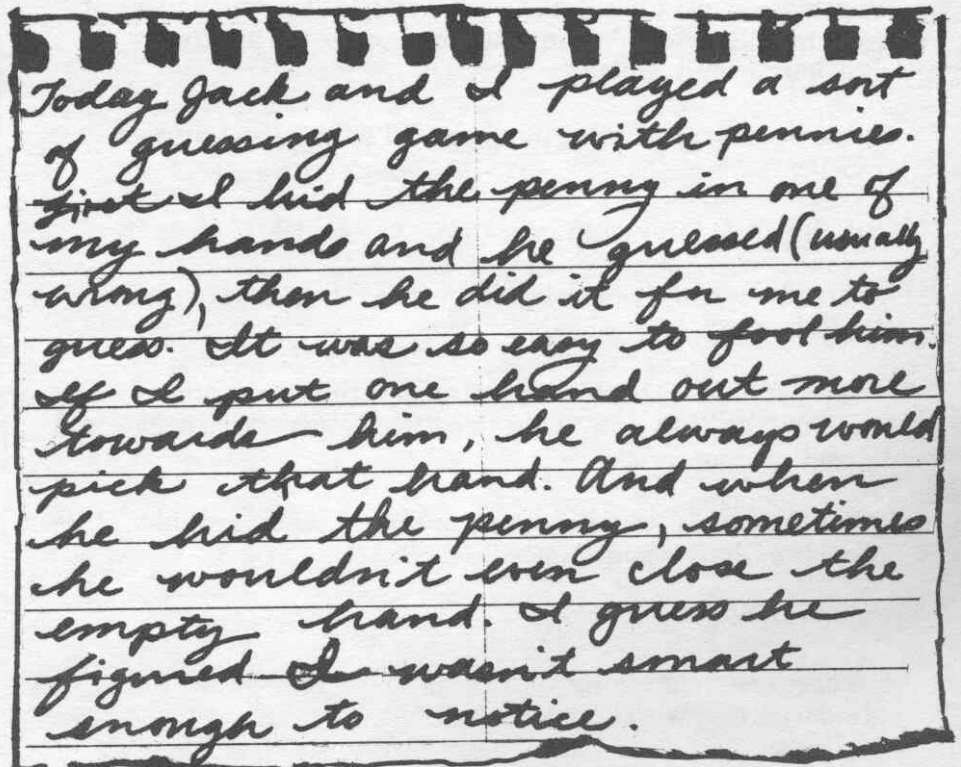 Today Jack and I played a sort
of guessing game with pennies.
First I hid the penny in one of
my hands and he guessed (usually
wrong), then he did it for me to
guess. It was so easy to fool him.
If I put one hand out more
towards him, he always would
pick that hand. And when
he hid the penny, sometimes
he wouldn't even close the
empty hand. I guess he
figured I wasn't smart
enough to notice.